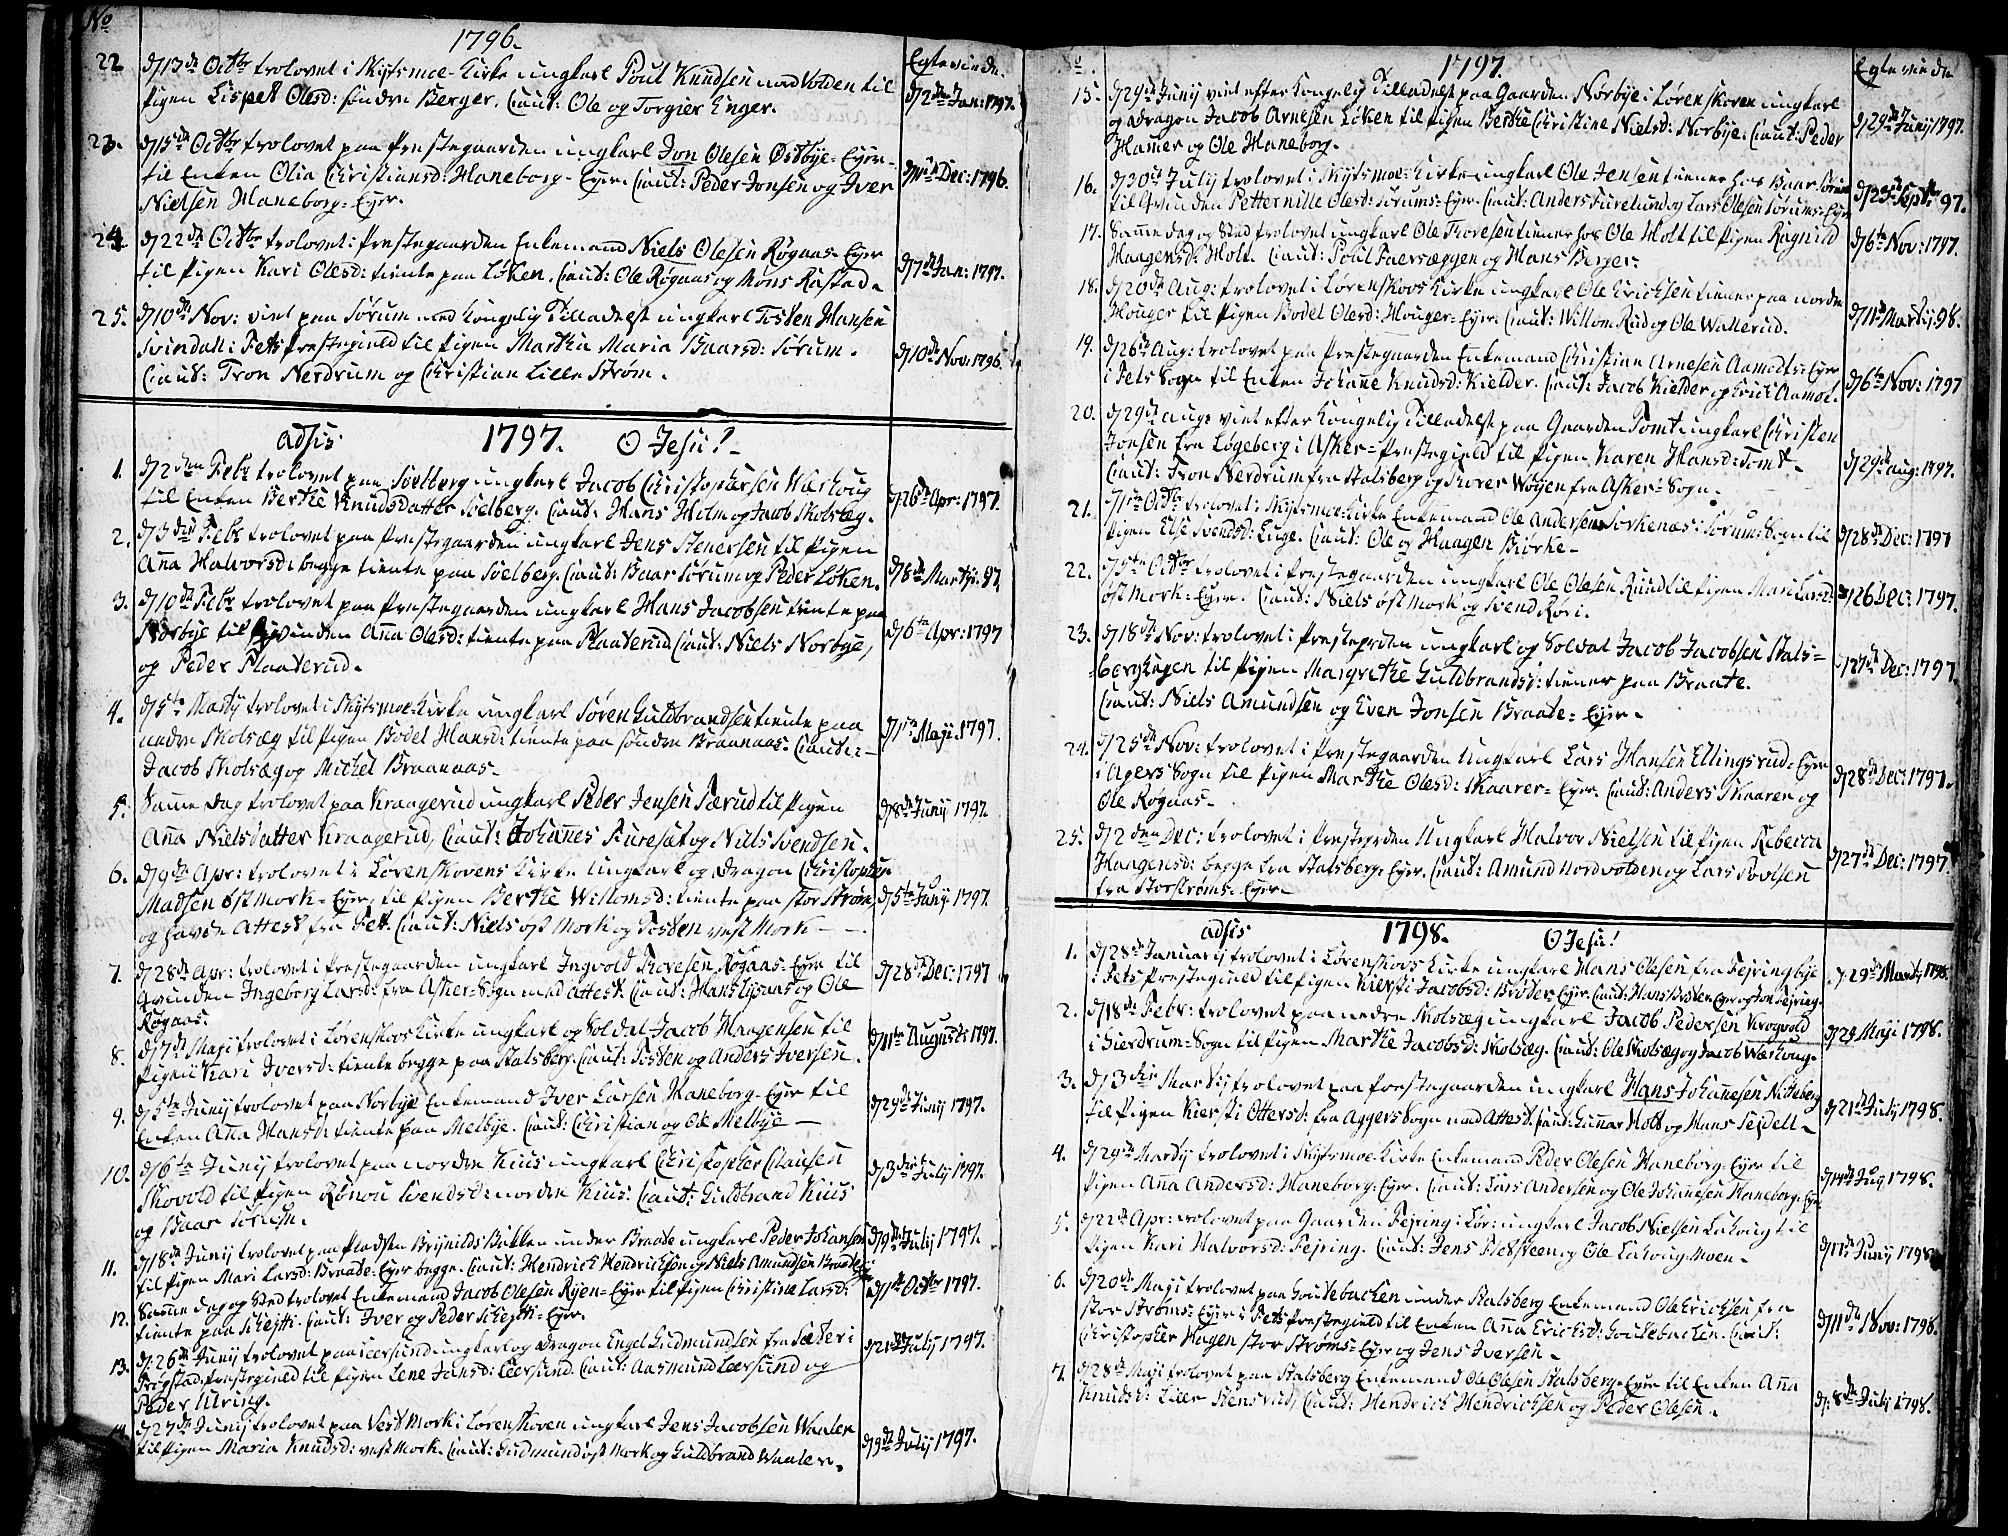 No
1796.
Egtevied.
22 d 13de Octbr trolovet i Skjetsmoe-Kirke ungkarl Poul Knudsen nord Volden til
Pigen Lispet Olesd: søndre Berger. Caut: Ole og Torgier Enger.
d 2de Jan: 1797.
23. d 15de Octbr trolovet paa Prestegaarden ungkarl Jon Olesen Østbye-Eyer-
til Enken Olia Christiansd: Haneborg-Eyer. Caut: Peder Jonsen og Iver
Nielsen Haneborg-Eyer.
Dec: 1796.
24. d 22de Octbr trolovet i Prestegaarden Enkemand Niels Olesen Røgaas-Eyer
til Pigen Kari Olesd: tiente paa Løken. Caut: Ole Røgaas og Mons Rastad.
d 7de Jan: 1797.
25. d 10de Nov: viet paa Sørum med Kongelig Tilladelse ungkarl Tosten Hansen
Svindall i Fets Prestegield til Pigen Marthe Maria Baarsd: Sørum.
Caut: Tron Nerdrum og Christian Lille Strøm.
d 10de Nov: 1796.
adsis 1797. O Jesu!
1. d 2den Febr trolovet paa Soelberg ungkarl Jacob Christophersen Warhoug
til Enken Berthe Knudsdatter Soelberg. Caut: Hans Holm og Jacob Skolseg.
d 26de Apr: 1797.
2. d 3die Febr trolovet paa Prestegaarden ungkarl Jens Stenersen til Pigen
Ana Halvorsd: begge tiente paa Soelberg. Caut: Baar Sørum og Peder Løken.
d 8de Martij: 97.
3. d 10de Febr trolovet paa Prestegaarden ungkarl Hans Jacobsen tiente paa
Norbye til Qvinden Ana Olesd: tiente paa Plaaterud. Caut: Niels Norbye,
og Peder Plaaterud.
d 6te Apr: 1797
4. d 5te Martij trolovet i Skjetsmoe-Kirke ungkarl Søren Guldbrandsen tiente paa
nedre Skolseg til Pigen Bodel Hansd: tiente paa søndre Braanaas. Caut:
Jacob Skolseg og Michel Braanaas.
Maji: 1797.
5. Same dag trolovet paa Kraagerud ungkarl Peder Jensen Farud til Pigen
Ana Nielsdatter Kraagerud, Caut: Johanes Furesæt og Nills Svendsen.
d 8de Junij 1797.
6. d 9de Apr: trolovet i Lørenskovens Kirke ungkarl og Dragon Christopher
Madsen øst Mork-Eyer, til Pigen Berthe Willomsd: tiente paa Stor Strøm,
og havde Attest fra Fet. Caut: Niels øst Mork og Tosten vest Mork
d 5te Junij 1797.
7. d 28de Apr: trolovet i Prestegaarden ungkarl Ingvold Thoresen Røgaas-Eyer til
Qvinden Ingeborg Larsd: fra Asker-Sogn med attest. Caut: Hans Lysaas og Ole
Røgaas.
d 28de Dec: 1797
8. d 7de Maji trolovet i Lørenskovs Kirke ungkarl og Soldat Jacob Haagensen til
Pigen Kari Iversd: tiente begge paa Stalsberg. Caut: Tosten og Anders Iversen.
d 11te Augusti: 1797.
9. d 5te Junij trolovet paa Norbye Enkemand Iver Larsen Haneborg-Eyer til
Enken Ana Hansd: tiente paa Melbye. Caut: Christian og Ole Melbye
d 29de Junij 1797.
10. d 6te Junij trolovet paa nordre Kius ungkarl Christopher Clausen
Skovold til Pigen Rønou Svendsd: nordre Kius. Caut: Guldbrand Kius
og Baar Sørum.
d 3die Julij 1797.
11. d 18de Junij trolovet paa Pladsen Brynilds Bakken under Braate ungkarl Peder Johansen
til Pigen Mari Larsd: Braate-Eyer begge. Caut: Hendrich Hendrichsen og Niels Amundsen Braate-Eyer
d 9de Julij 1797.
12. Same dag og Sted trolovet Enkemand Jacob Olesen Ryen-Eyer til Pigen Christine Larsd:
tiente paa Schejtti. Caut: Iver og Peder Schejtti-Eyer.
d 1ste Octbr 1797.
13. d: 26de Junij trolovet paa Leersund ungkarl og Dragon Engel Gudmundsen fra Sæter i
Trøgstad-Prestegield til Pigen Lene Jansd: Leersund. Caut: Aasmund Leersund og
Peder Ulring.
d 21de Julij 1797.
14. d 27de Junij trolovet paa Vest Mork i Lørenskoven ungkarl Jens Jacobsen Waaler
til Pigen Maria Knudsd: vest Mork. Caut: Gudmund øst Mork og Guldbrand Waaler.
d 9de Julij 1797.
1797.
Egtevied
15. d 29de Junij viet efter Kongelig Tilladelse paa Gaarden Norbye i Lørenskoven ungkarl
og Dragon Jacob Arnesen Løken til Pigen Berthe Christine Nielsd: Norbye. Caut: Peder
Hamer og Ole Haneborg.
d 29de Junij 1797.
16. d 30te Julij trolovet i Skjetsmoe-Kirke ungkarl Ole Jensen tiener hos Baar Sørum
til Qvinden Petternille Olesd: Sørums-Eyer. Caut: Anders Furelund og Lars Olesen Sørums-Eyer
d 23de Septbr 97.
17. Same dag og Sted trolovet ungkarl Ole Thoresen tiener hos Ole Holt til Pigen Ragnild
Haagensd: Holt. Caut: Poul Faerseggen og Hans Berger.
d 6te Nov: 1797.
18. d 20de Aug: trolovet i Lørenskovs Kirke ungkarl Ole Erichsen tiener paa nordre
Houger til Pigen Bodel Olesd: Houger-Eyer. Caut: Willom Rud og Ole Watterud.
d 11te Martij. 98.
19. d 26de Aug: trolovet paa Prestegaarden Enkemand Christian Arnesen Aamodts-Eyer
i Fets Sogn til Enken Johane Knudsd: Kielder. Caut: Jacob Kielder og Erich Aamot.
d 6te Nov: 1797
20. d 29de aug: viet efter Kongelig Tilladelse paa Gaarden Tomt ungkarl Christen
Jonsen fra Løgeberg i Asker-Prestegield til Pigen Karen Hansd: Tomt.
Caut: Tron Nerdrum fra Stalsberg og Thorer Wøyen fra Asker-Sogn.
d 29de aug: 1797.
21. d 1ste Octbr trolovet i Skjetsmoe-Kirke Enkemand Ole Andersen Torkenas i Sørum Sogn til
Pigen Else Svendsd: Enge. Caut: Ole og Haagen Biørke.
d 28de Dec: 1797
22. d 5te Octbr trolovet i Prestegaarden ungkarl Ole Olesen Rund til Pigen Mari Larsd:
øst Mork-Eyer. Caut: Niels øst Mork og Svend Kori.
d 26 Dec: 1797.
23. d 18de Nov: trolovet i Prestegrden ungkarl og Soldat Jacob Jacobsen Stals-
bergshagen til Pigen Margrethe Guldbrandsd: tiener paa Braate.
Caut: Niels Amundsen og Even Jonsen Braate-Eyer.
Dec: 1797.
24. d 25de Nov: trolovet i Prestegaarden Ungkarl Lars Hansen Ellingsrud-Eyer
i Agers Sogn til Pigen Marthe Olesd: Skaarer-Eyer. Caut: Anders Skaarer og
Ole Røgaas.
d 28de Dec: 1797.
25. d 2den Dec: trolovet i Prestegrden Ungkarl Halvor Nielsen til Pigen Rebecca
Haagensd: begge fra Stalsberg-Eyer. Caut: Amund Nordvolden og Lars Povelsen
fra Storstrøms-Eyer.
d 27de Dec: 1797.
adsis 1798. O Jesu!
1. d 28de Januarij trolovet i Lørenskovs Kirke ungkarl Hans Olesen fra Fejringbye
i Fets Prestegield til Pigen Kiersti Jacobsd: Brøder-Eyer. Caut: Hans Brøder-Eyer og Jon Fejring.
29de Martij 1798.
2. d 18de Febr: trolovet paa nedre Skolseg ungkarl Jacob Pedersen Krogvold
i Gierdrum-Sogn til Pigen Marthe Jacobsd: Skolseg. Caut: Ole Skolseg og Jacob Warhoug.
d 29 Maji 1798.
3. d 3die Martij trolovet paa Prestegaarden ungkarl Hans Johanesen Nitteberg
til Pigen Kiersti Ottersd: fra Aggers Sogn med Attest. Caut: Gunnar Holt og Hans Seidell.
d 21de Julij 1798.
4. d 29de Martij trolovet i Skjetsmoe-Kirke Enkemand Peder Olesen Haneborg-Eyer til
Pigen Ana Andersd: Haneborg-Eyer. Caut: Lars Andersen og Ole Johanesen Haneborg-Eyer
d 14de 1798.
5. d 22de Apr: trolovet paa Gaarden Fejring i Lør: ungkarl Jacob Nielsen Lahoug til
Pigen Kari Halvorsd: Fejring. Caut: Jens Fladsteen og Ole Lahoug Moen.
Junij 1798
6. d 20de Maji trolovet paa Goutebacken under Stalsberg Enkemand Ole Erichsen fra
Stor Strøms-Eyer i Fets Prestegield til Enken Ana Erichsd: Goutebacken. Caut:
Christopher Hagen Stor Strøms-Eyer og Jens Iversen.
d 11te Nov: 1798.
7. d 28de Maji trolovet paa Stalsberg Enkemand Ole Olesen Stalsberg-Eyer til Enken Ana
Knudsd: Lille Stensrud, Caut: Hendrich Hendrichsen og Peder Olesen.
d: 8de Julij 1798.